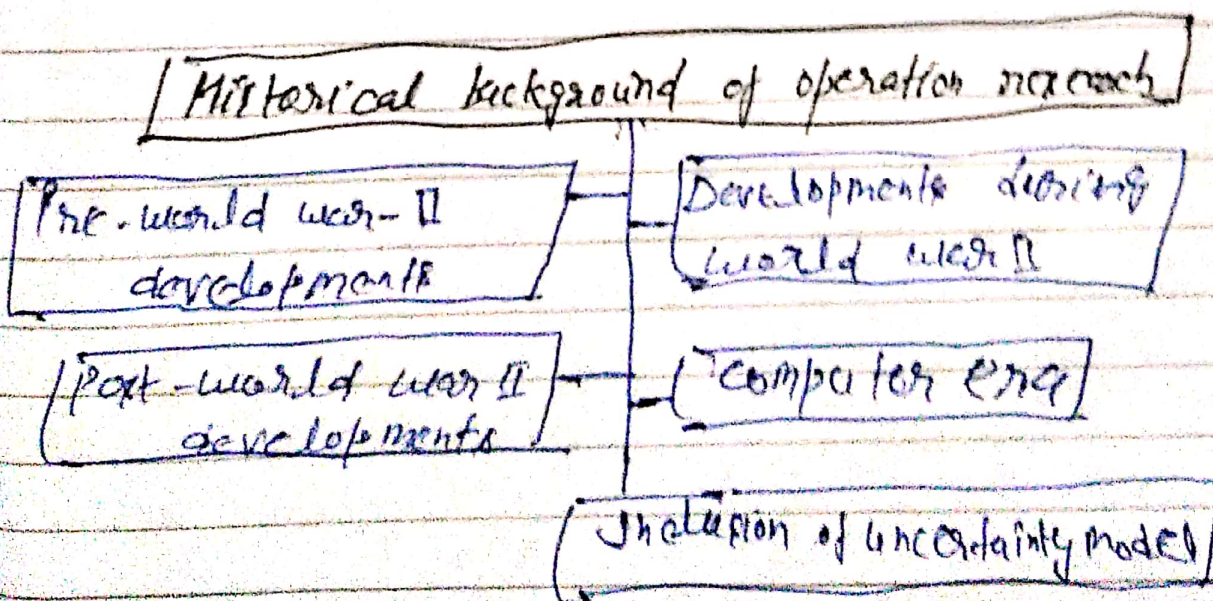 Historical background of operation research
Pre-world war-II
developments
Developments during
world war II
Post-world war II
developments
Computer era
Inclusion of uncertainty model